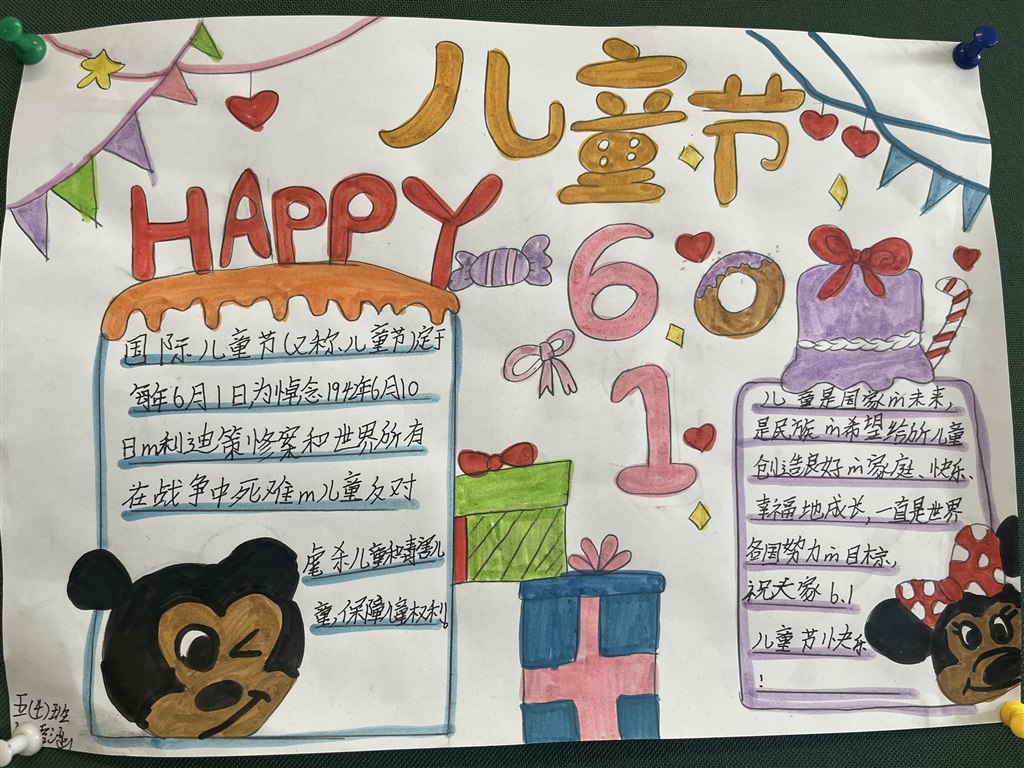 儿童节
HAPPY
6
1
国际儿童节(又称儿童节)定于
每年6月1日,为悼念1942年6月10
日的利迪策惨案和世界所有
在战争中死难的儿童反对
虐杀儿童和毒害儿
童,保障儿童权利。
儿童是国家的未来,
是民族的希望给所儿童
创造良好的家庭、快乐、
幸福地成长,一直是世界
各国努力的目标、
祝大家6.1
儿童节快乐
!
五(4)班